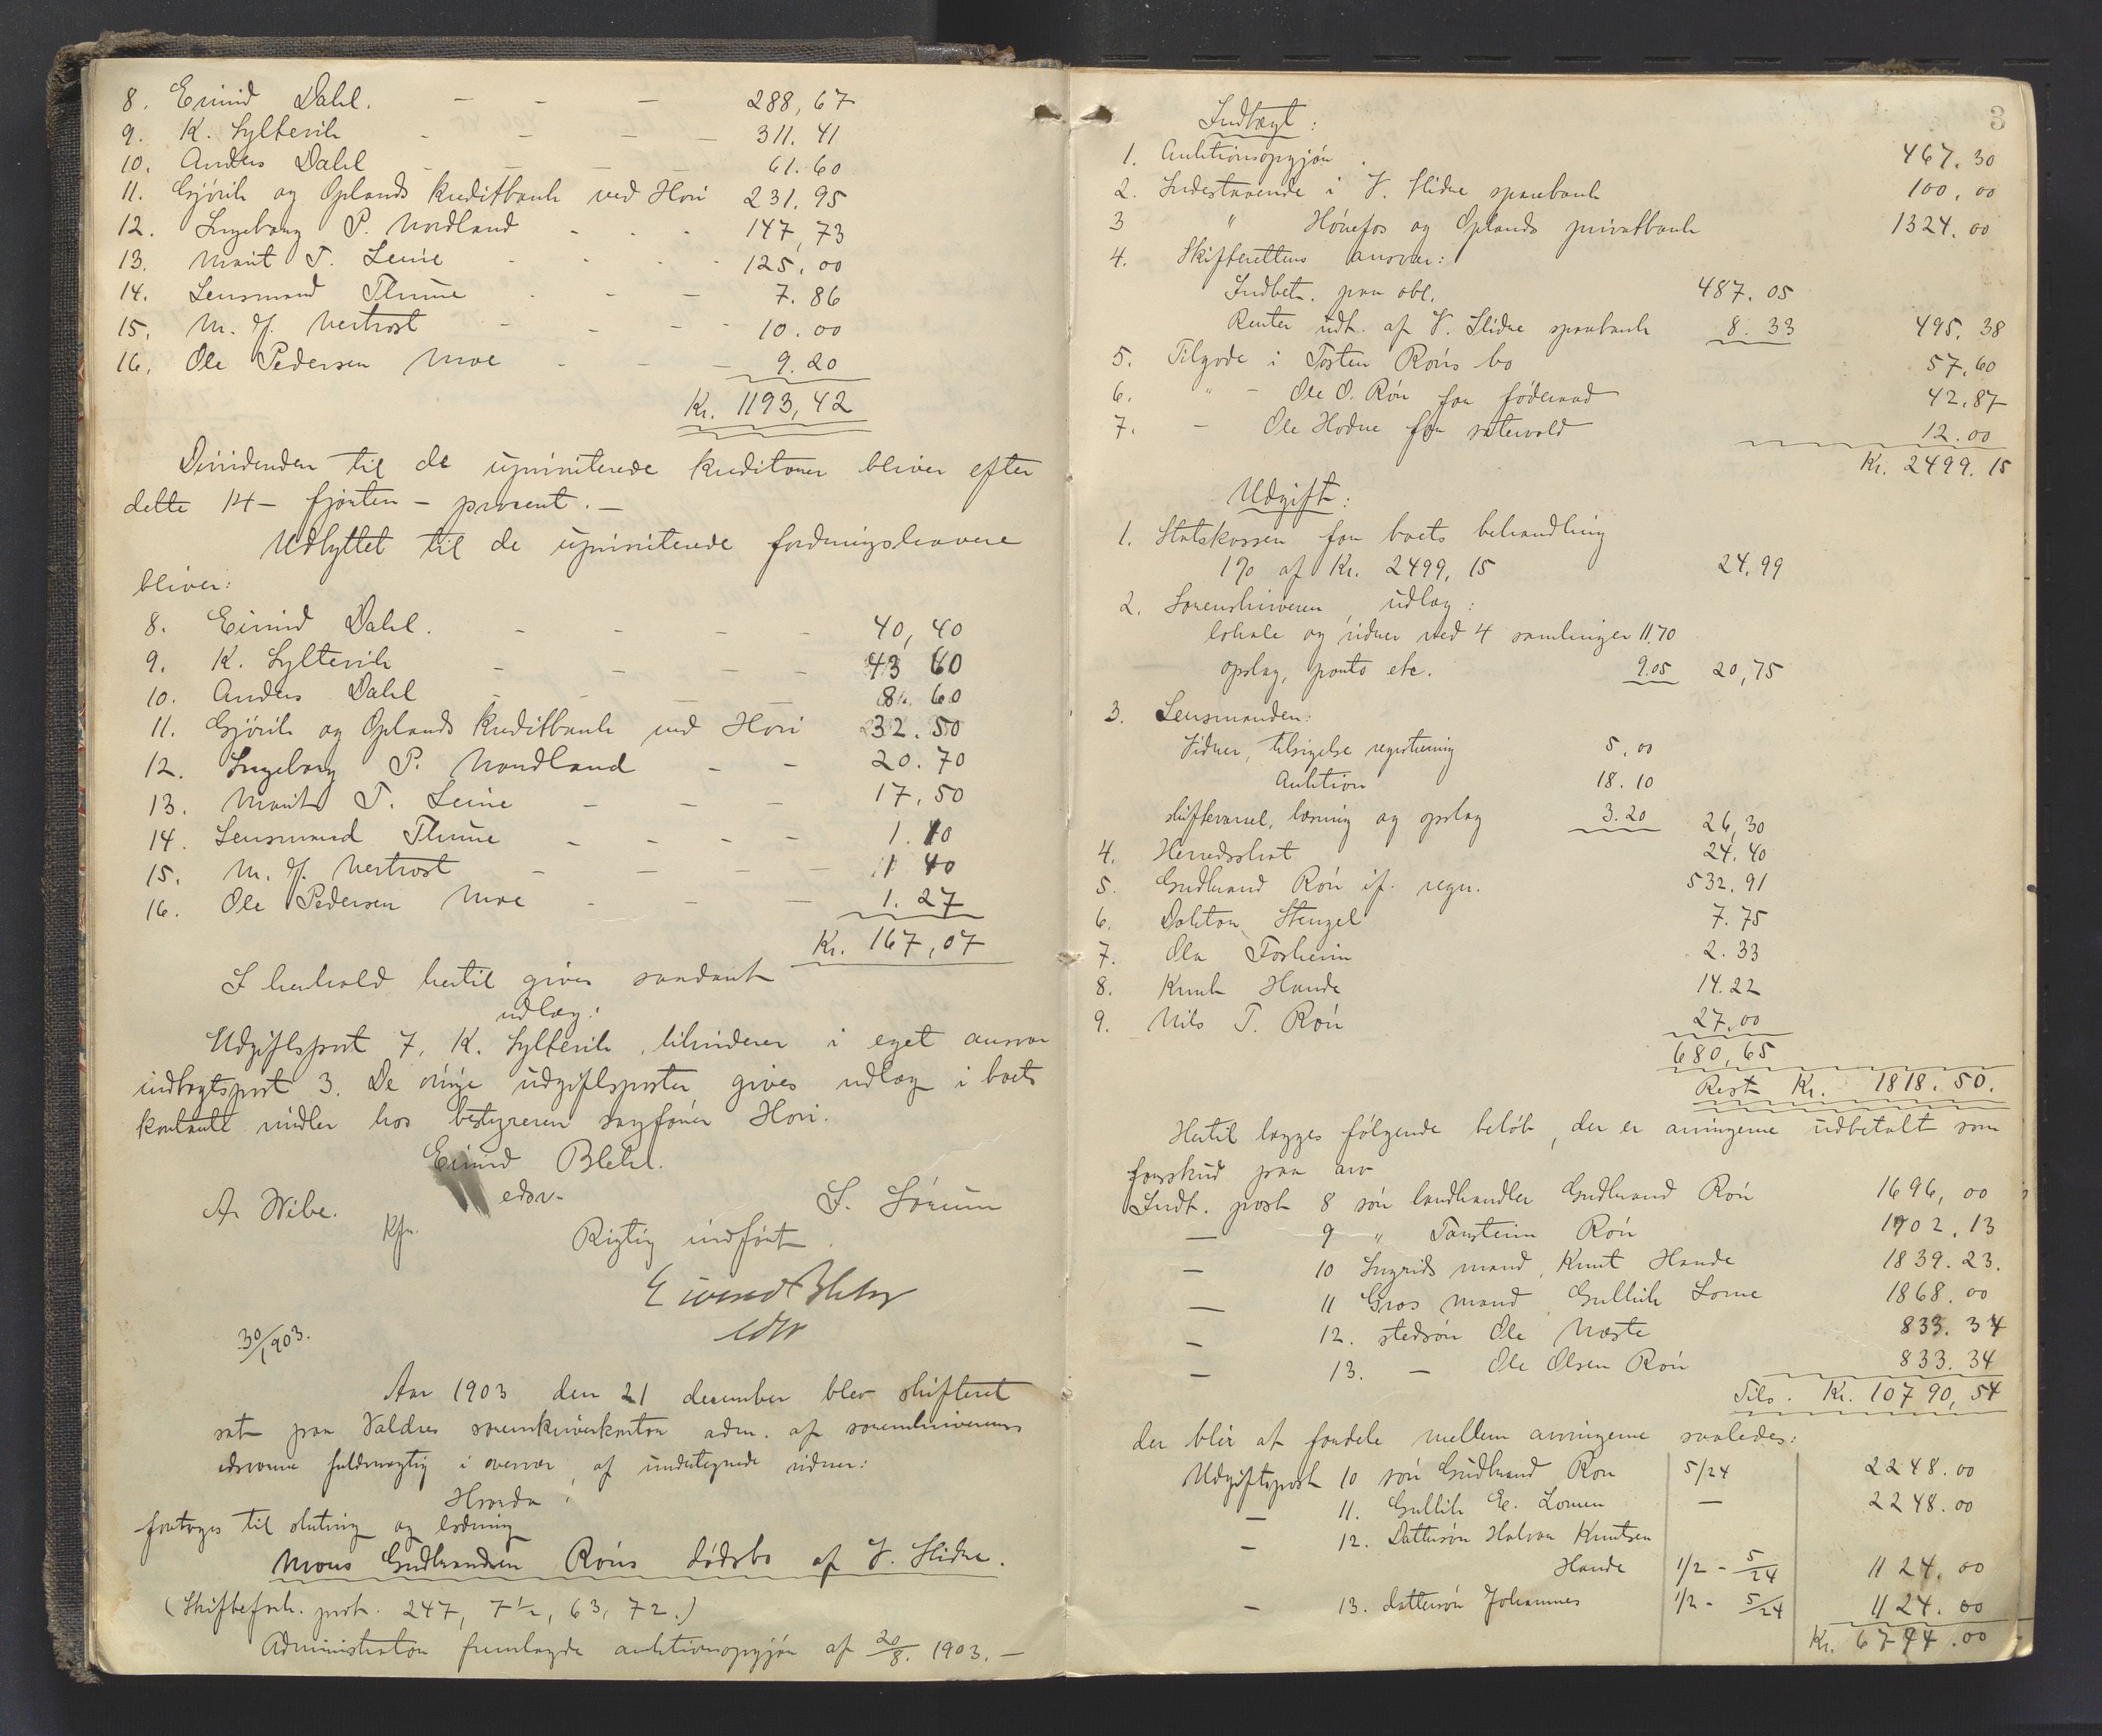 8. Eivind Dahl. - - - 288,67
9. K. Syltevik - - - - 311.41
10. Anders Dahl - - - 61.60
11. Gjövik og Oplands Kreditbank ved Hovi 231.95
12. Ingeborg P. Nordland - - - 147,73
13. Marit T. Leine - - - - 125.00
14. Lensmand Thune - - - 7.86
15. M. H. Vestrost - - - - 10.00
16. Ole Pedersen Moe - - - 9.20
Kr. 1193,42
Dividenden til de upriviterede kreditorer bliver efter
dette 14 - fjorten - procent. -
Udbyttet til de upriviterede fordringshavere
bliver:
8. Eivind Dahl. - - - - 40,40
9. K. Syltevik - - - - 43 60
10. Anders Dahl - - - 8. 60
11. Gjövik og Oplands Kreditbank ved Hovi 32.50
12. Ingeborg P. Nordland - - 20.70
13. Marit T. Leine - - - 17,50
14. Lensmand Thune - - - - 1.10
15. M. H. Vestrost - - - - 1 40
16. Ole Pedersen Moe - - - 1.27
Kr. 167,07
I henhold hertil gives saadant
udlæg:
Udgiftspost 7, K. Syltevik, tilsvarer i eget ansvar
indtægtspost 3. De övrige udgiftsposter gives udlæg i boets
kontante midler hos bestyreren sagförer Hovi.
Eivind Blehr.
edsv-
A. Wibe. S. Sörum
Kfr.
Rigtig indfört
Eivind Blehr
edsv
30/1 903.
Aar 1903 den 21 december blev skifteret
sat paa Valdres sorenskriverkontor adm. af sorenskriverens
edsvorne fuldmægtig i overvær af undertegnede vidner:
Hvorda:
foretoges til slutning og lodning
Mons Gudbrandsen Röns dödsbo af V. Slidre.
(Skifteforh. prot. 247, 7 1/2, 63, 72.)
Administrator fremlagde auktionsopgjör af 20/8. 1903. -
3
Indtægt:
1. Auktionsopgjör. 467.30
2. Indestaaende i V. Slidre sparebank 100.00
3 " Hönefos og Oplands privatbank 1324.00
4. Skifterettens ansvar:
Indbet. paa obl. 487.05
Renter udt. af V. Slidre sparebank 8.33 495.38
5. Tilgode i Tosten Röns bo 57.60
6. " - Ole O. Rön for föderaad 42.87
7. - Ole Hodne for sætervold 12.00
Kr. 2499.15
Udgift:
1. Statskassen for boets behandling
1% af Kr. 2499,15 24.99
2. Sorenskriveren, udlæg:
lokale og vidner ved 4 samlinger 11.70
opslag, porto etc. 9.05 20,75
3. Lensmanden:
Vidner, tilsigelse registrering 5.00
Auktion 18.10
skiftevarsel, læsning og opslag 3.20 26,30
4. Herredsskat 24.40
5. Gudbrand Rön if. regn. 532.91
6. Doktor Stenzel 7.75
7. Ola Forheim 2.33
8. Knut Hande 14.22
9. Nils T. Rön 27.00
680,65
Rest Kr. 1818.50.
Hertil lægges fölgende belöb, der er arvingerne udbetalt som
forskud paa arv
Indt. post 8 sön landhandler Gudbrand Rön 1696,00
- 9 " Torstein Rön 1902.13
- 10 Ingrids mand, Knut Hande 1839.23.
- 11 Gros mand, Gullik Lome 1868.00
- 12. stedsön Ole Næste 833.34
- 13. - Ole Olsen Rön 833.34
Tils. Kr. 10790,54
der blir at fordele mellem arvingerne saaledes:
Udgiftspost 10 sön Gudbrand Rön 5/24 2248.00
- 11. Gullik E. Lomen - 2248.00
- 12. Dattersön Halvor Knutsen
Hande 1/2 - 5/24 1124.00
- 13. dattersön Johannes 1/2 - 5/24 1124.00
Kr. 6744.00